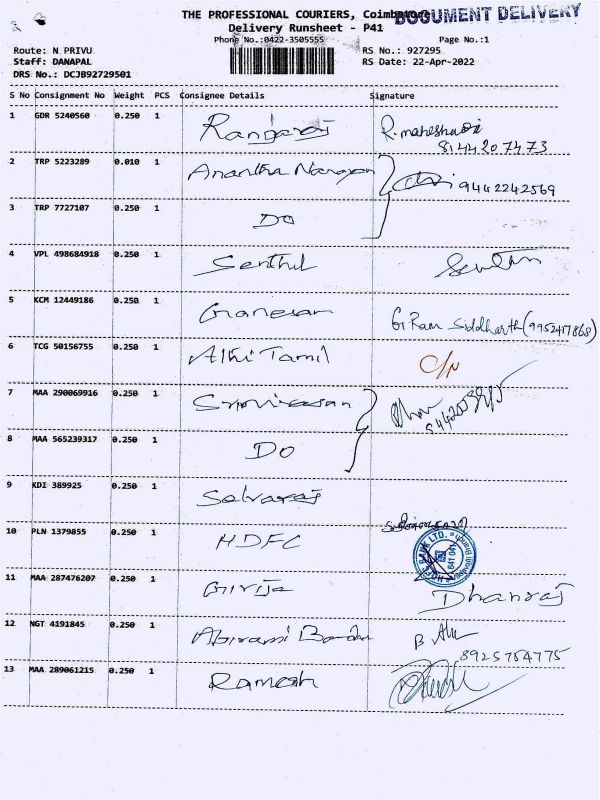 THE PROFESSIONAL COURIERS, Coimbatore
DOCUMENT DELIVERY
Delivery Runsheet - P41
2 Phone No.:0422-3505555 Page No.:1
Route: N PRIVU RS No.: 927295
Staff: DANAPAL RS Date: 22-Apr-2022
DRS No.: DCJB92729501
S No Consignment No Weight PCS Consignee Details Signature
1 GDR 5240560 0.250 1 Rangaraj R.maheshwari
8144207473
2 TRP 5223289 0.010 1 Anantha Narayan 9442242569
3 TRP 7727107 0.250 1 DO
4 VPL 498684918 0.250 1 Senthil
5 KCM 12449186 0.250 1 Ganesan G.Ram Siddharth (9952417868)
6 TCG 50156755 0.250 1 Athi Tamil C/N
7 MAA 290069916 0.250 1 Srinivasan
8 MAA 565239317 0.250 1 DO
9 KDI 389925 0.250 1 Selvaraj
10 PLN 1379855 0.250 1 HDFC
HDFC BANK LTD. 641 041
11 MAA 287476207 0.250 1 Girija Dhanraj
12 NGT 4191845 0.250 1 Abirami B
8925754775
13 MAA 289061215 0.250 1 Ramesh